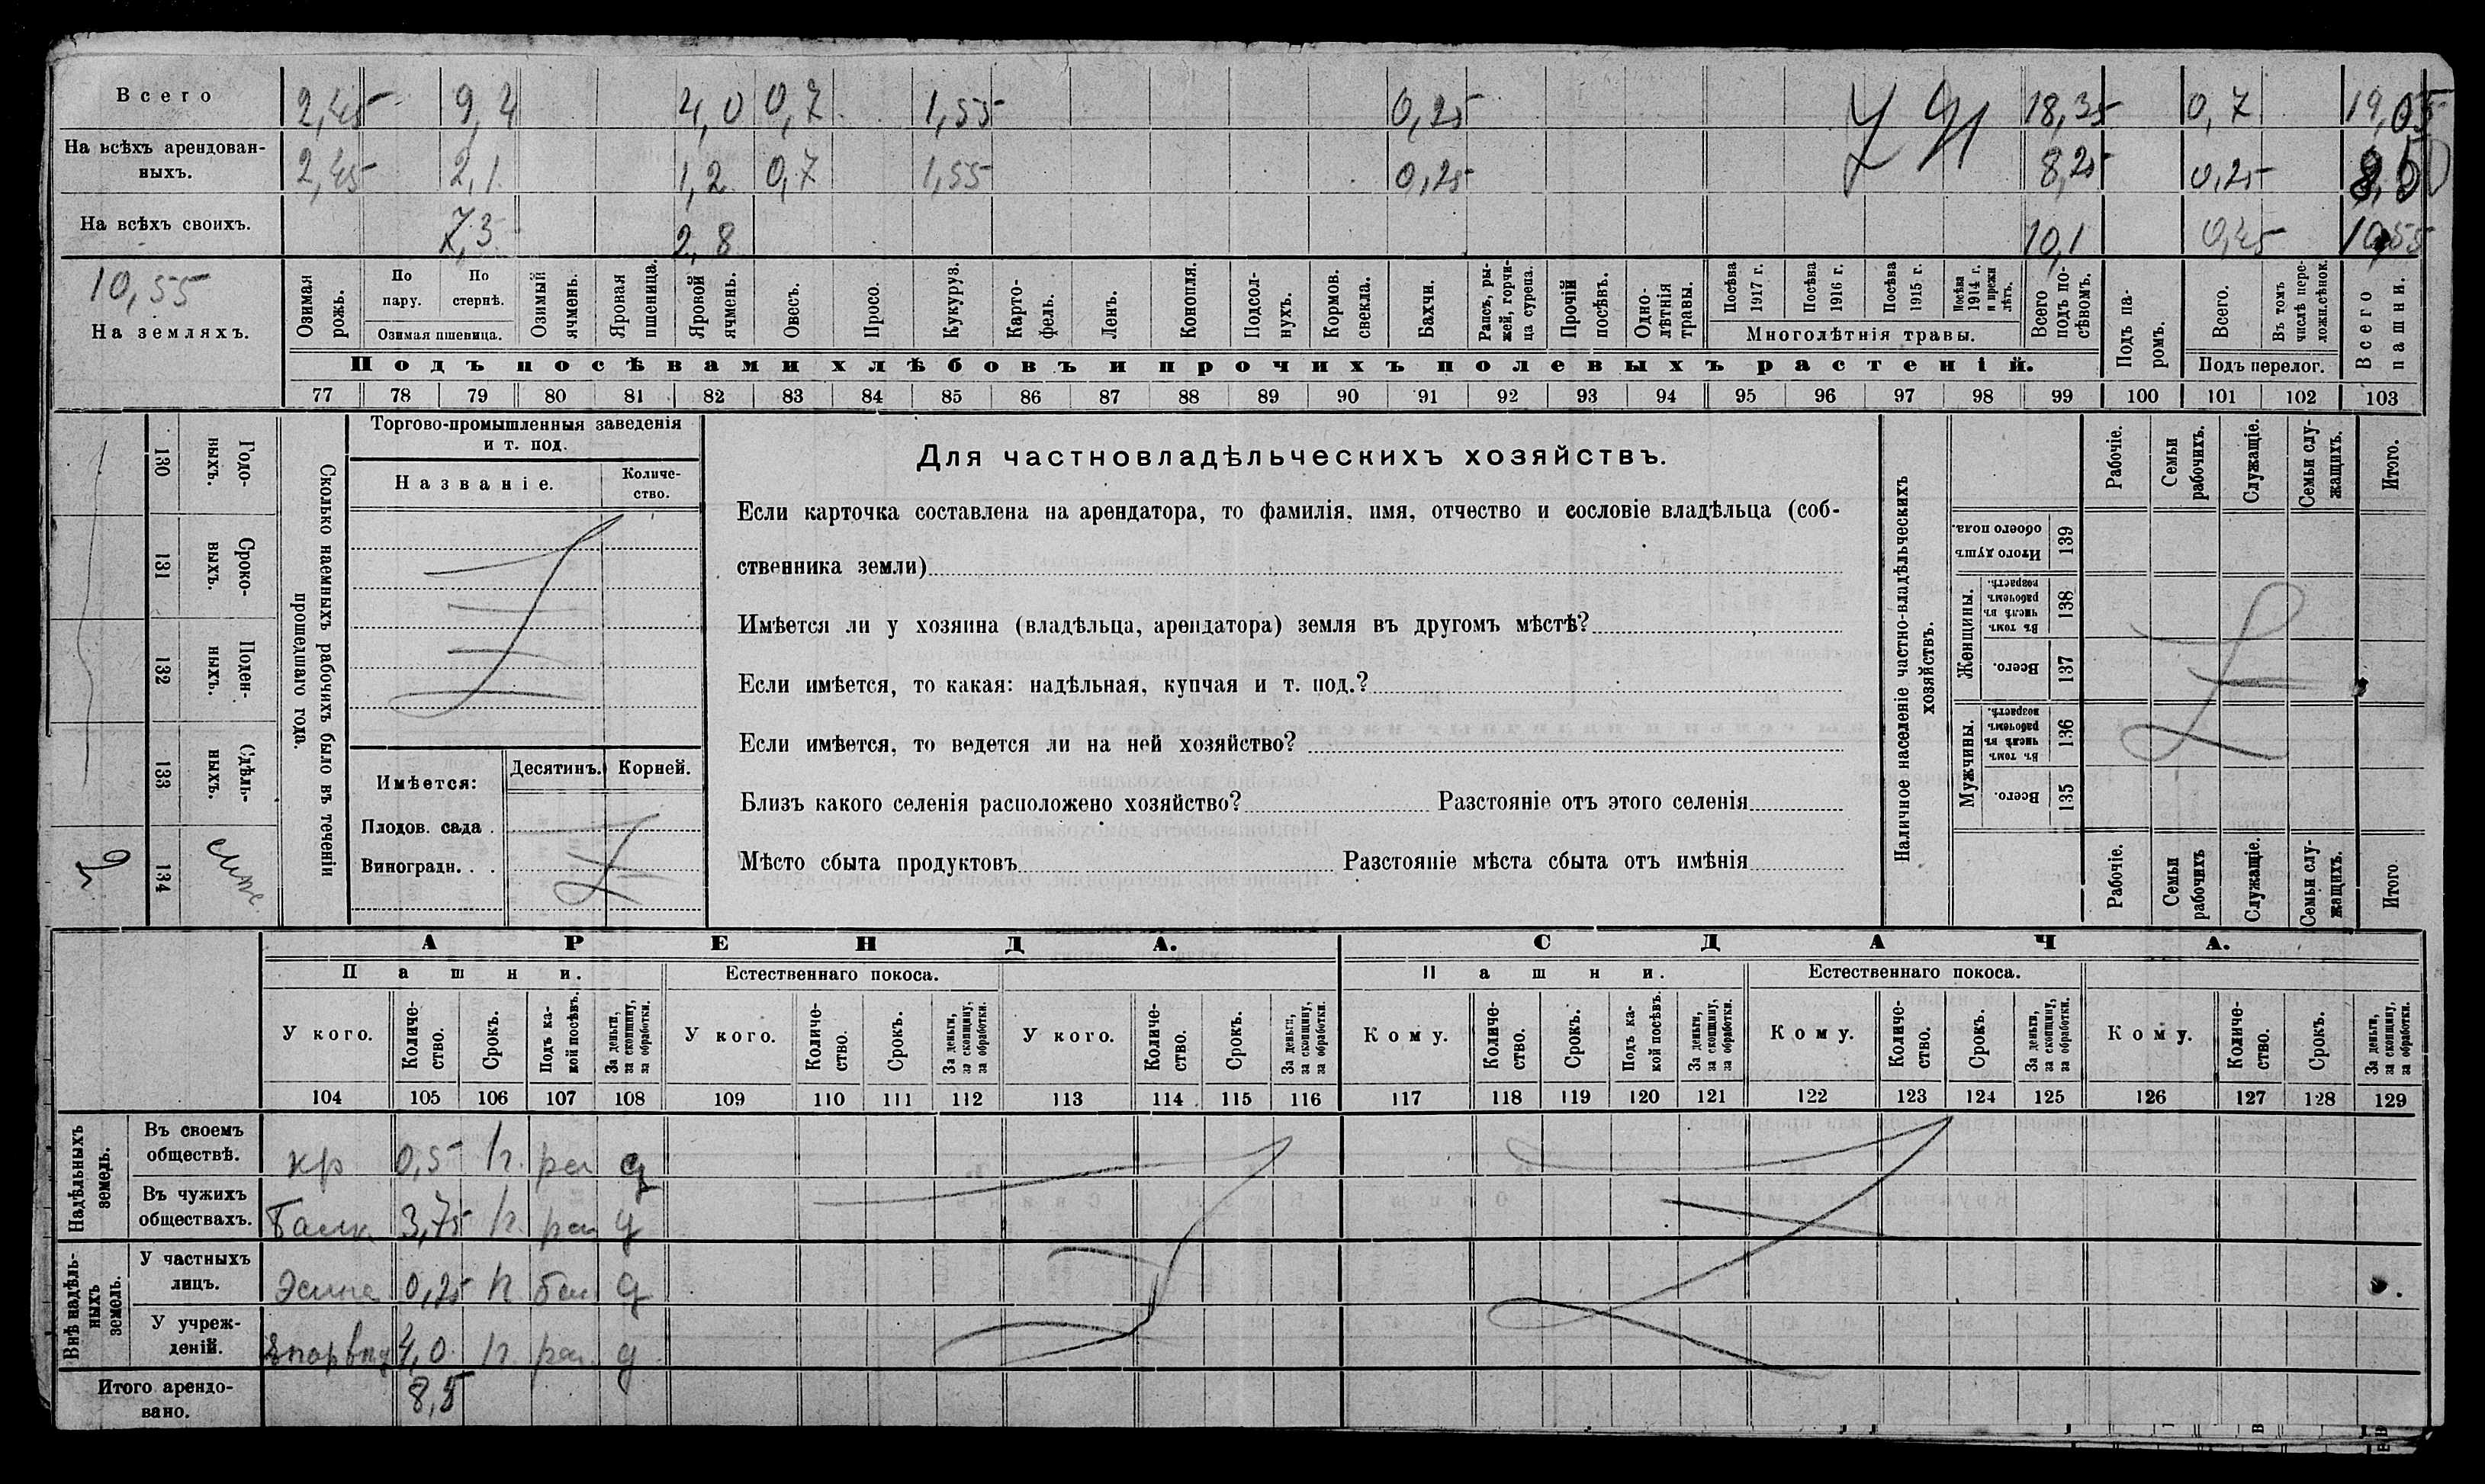 Всего 2,45 9,4 4,0 0,7 1,55 0,25 18,35 0,7 19,05
На всѣхъ арендован-
ныхъ. 2,45 2,1 1,2 0,7 1,55 0,25 8,25 0,25 8,50
На всѣхъ своихъ. 7,3 2,8 10,1 0,45 10,55
10,55
На земляхъ.
Озимая рожь.
По пару.
По стернѣ.
Озимая пшеница.
Озимый ячмень.
Яровая пшеница.
Яровой ячмень.
Овесъ.
Просо.
Кукуруз.
Карто-
фель.
Ленъ.
Конопля.
Подсол-
нухъ.
Кормов. свекла.
Бахчи.
Рапсъ, ры-
жей, горчи-
ца сурепа.
Прочій посѣвъ.
Одно-
лѣтнія травы.
Посѣва 1917 г.
Посѣва 1916 г.
Посѣва 1915 г.
Посѣва 1914 г. и прежн лѣтъ.
Многолѣтнія травы.
Всего подъ по-
сѣвомъ.
Подъ па-
ромъ.
Всего.
Въ томъ числѣ пере-
ложн.сѣнок.
Подъ перелог.
Всего пашни.
Подъ посѣвами хлѣбовъ и прочихъ полевыхъ растеній.
77 78 79 80 81 82 83 84 85 86 87 88 89 90 91 92 93 94 95 96 97 98 99 100 101 102 103
Годо-
выхъ.
130
Сроко-
выхъ.
131
Поден-
ныхъ.
132
Сдѣль-
ныхъ.
133
134
Сколько наемныхъ рабочихъ было въ теченіи
прошедшаго года.
Торгово-промышленныя заведенія
и т. под.
Названіе.
Количе-
ство.
Имѣется:
Десятинъ.
Корней.
Плодов. сада .
Виноградн. . .
Для частновладѣльческихъ хозяйствъ.
Если карточка составлена на арендатора, то фамилія, имя, отчество и сословіе владѣльца (соб-
ственника земли)
Имѣется ли у хозяина (владѣльца, арендатора) земля въ другомъ мѣстѣ?
Если имѣется, то какая: надѣльная, купчая и т. под.?
Если имѣется, то ведется ли на ней хозяйство?
Близъ какого селенія расположено хозяйство? Разстояніе отъ этого селенія
Мѣсто сбыта продуктовъ Разстояніе мѣста сбыта отъ имѣнія
Наличное населеніе частно-владѣльческихъ
хозяйствъ.
Рабочіе.
Семьи рабочихъ.
Служащіе.
Семьи слу-
жащихъ.
Итого.
Итого душъ обоего пола.
139
Женщины.
Въ томъ числѣ въ рабочемъ возрастѣ.
138
Всего.
137
Мужчины.
Въ томъ числѣ въ рабочемъ возрастѣ.
136
Всего.
135
Рабочіе.
Семьи рабочихъ
Служащіе.
Семьи слу-
жащихъ.
Итого
АРЕНДА. СДАЧА.
Пашни. Естественнаго покоса. Пашни. Естественнаго покоса.
У кого.
Количе-
ство.
Срокъ.
Подъ ка-
кой посѣвъ.
За деньги, за скопщину, за обработки.
У кого.
Количе-
ство.
Срокъ.
За деньги, за скопщину, за обработки.
У кого.
Количе-
ство.
Срокъ.
За деньги, за скопщину, за обработки.
Кому.
Количе-
ство.
Срокъ.
Подъ ка-
кой посѣвъ.
За деньги, за скопщину, за обработки.
Кому.
Количе-
ство.
Срокъ.
За деньги, за скопщину, за обработки.
Кому.
Количе-
ство.
Срокъ.
За деньги, за скопщину, за обработки.
104 105 106 107 108 109 110 111 112 113 114 115 116 117 118 119 120 121 122 123 124 125 126 127 128 129
Надѣльныхъ земель.
Въ своемъ
обществѣ. кр 0,5 д
Въ чужихъ
обществахъ. 3,75 д
Внѣ надѣль-
ныхъ земель.
У частныхъ
лицъ. 0,25 д
У учреж-
деній. 4,0 д
Итого арендо-
вано. 8,5